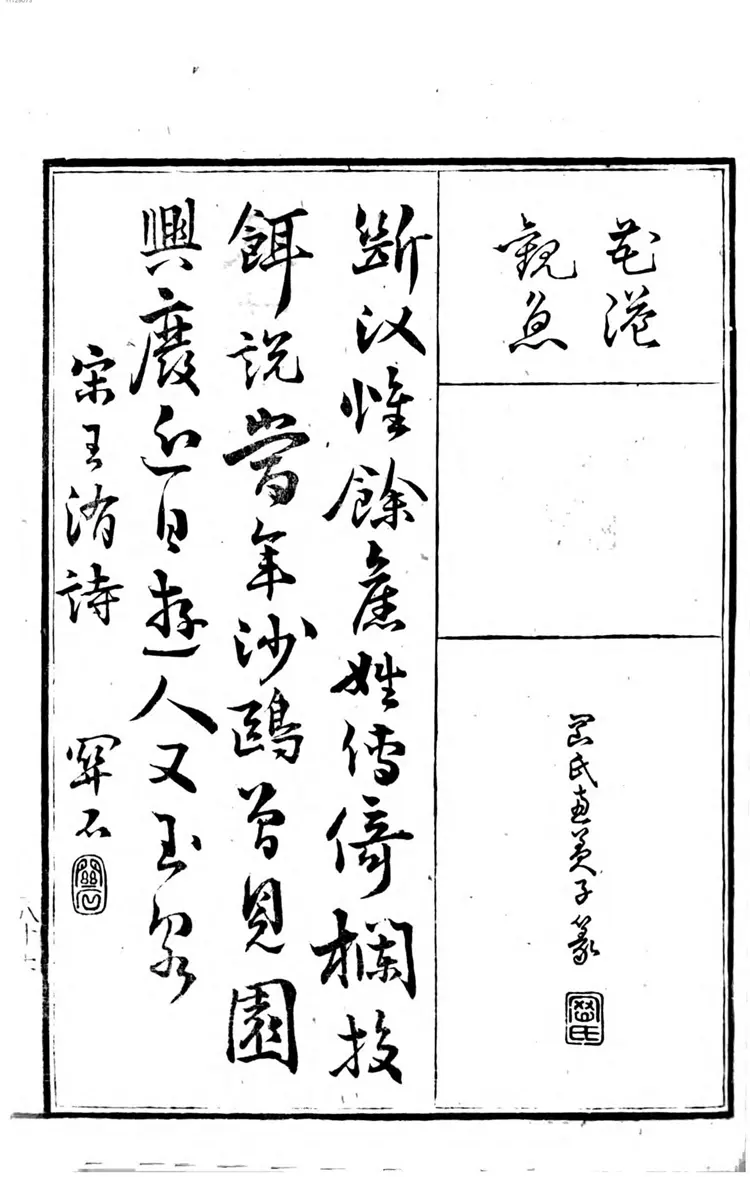 花港
觀魚
氏
子篆
斷汊惟餘舊姓傳倚欄投
餌説當年沙鷗曾見園
興廢近日遊人又玉泉
宋王洧詩
石